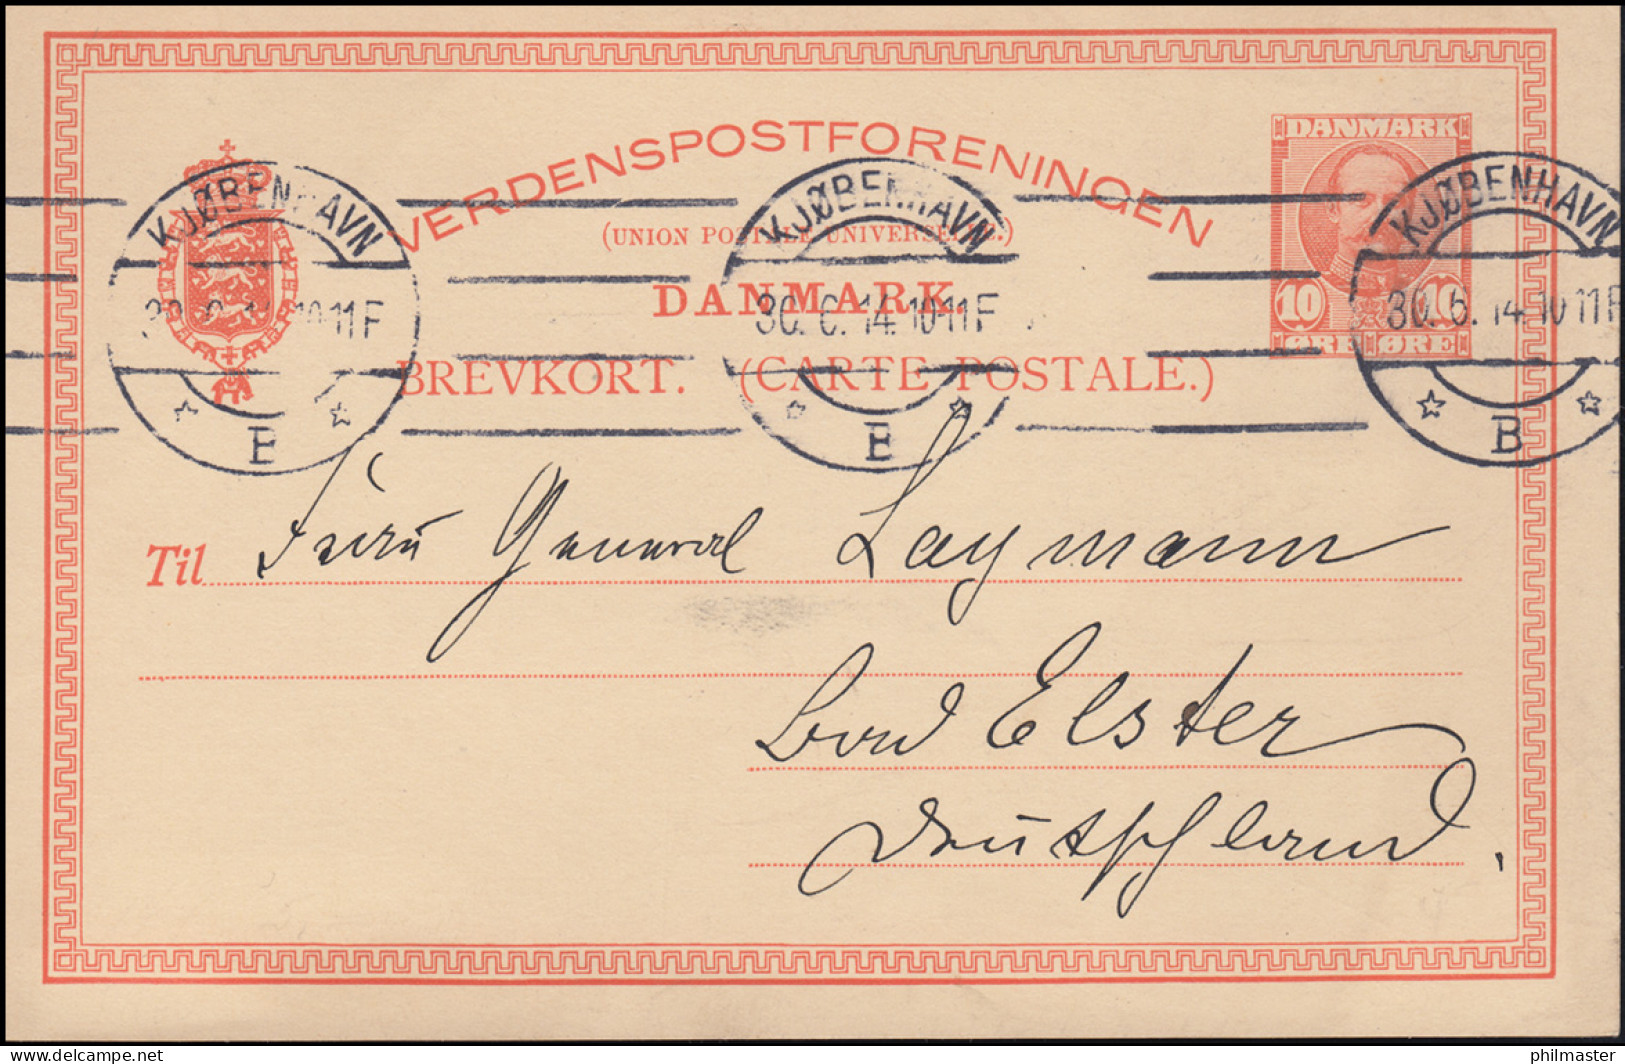 VERDENSPOSTFORENINGEN
(UNION POSTALE UNIVERSELLE.)
DANMARK.
BREVKORT. (CARTE POSTALE.)
DANMARK
10 10
ØRE ØRE
KJØBENHAVN
30. 6. 14. 10 11 F
B
KJØBENHAVN
30. 6. 14. 10 11 F
B
KJØBENHAVN
30. 6. 14. 10 11 F
B
Til Frau General Laymann
Bad Elster
Deutschland.
www.delcampe.net
philmaster